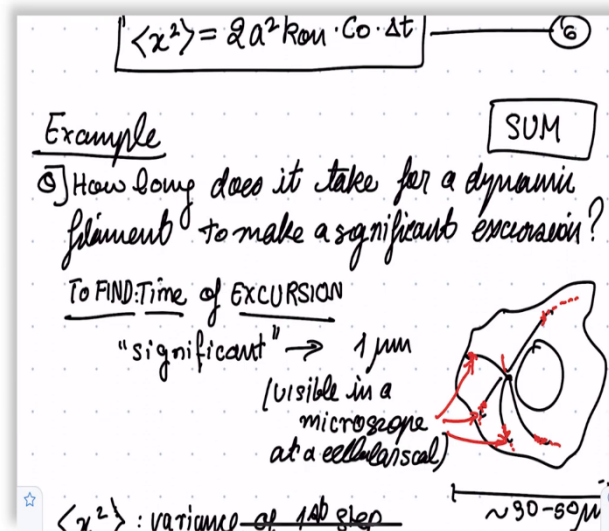 ⟨x²⟩ = 2a² kon · Co · Δt
6
Example
SUM
Q] How long does it take for a dynamic
filament to make a significant excursion?
TO FIND: Time of EXCURSION
"significant" → 1 μm
(visible in a
microscope
at a cellular scal)
⟨x²⟩ : variance of 1st step